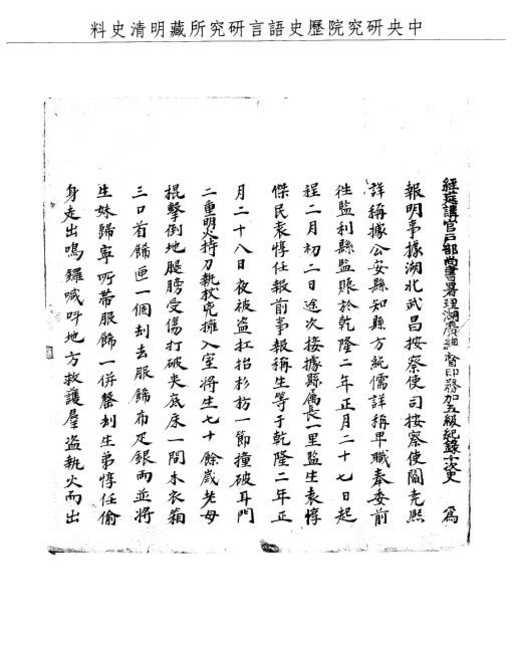 中央研究院歷史語言研究所藏明清史料
經筵講官戶部尚書署理湖廣總督印務加五級紀錄十次史 為
報明事據湖北武昌按察使司按察使閻堯熙
詳稱據公安縣知縣方純儒詳稱卑職奉委前
往監利縣監賑於乾隆二年正月二十七日起
程二月初二日途次接據縣屬長一里監生袁惇
傑民袁惇任報前事報稱生等于乾隆二年正
月二十八日夜被盜扛抬杉枋一節撞破耳門
二重明火持刀執杖兇擁入室將生七十餘歲老母
棍擊倒地腿膀受傷打破夾底床一間木衣箱
三口首飾匣一個刦去服飾布疋銀兩並將
生妹歸寧所帶服飾一併罄刦生弟惇任偷
身走出鳴鑼喊呌地方救護羣盜執火而出